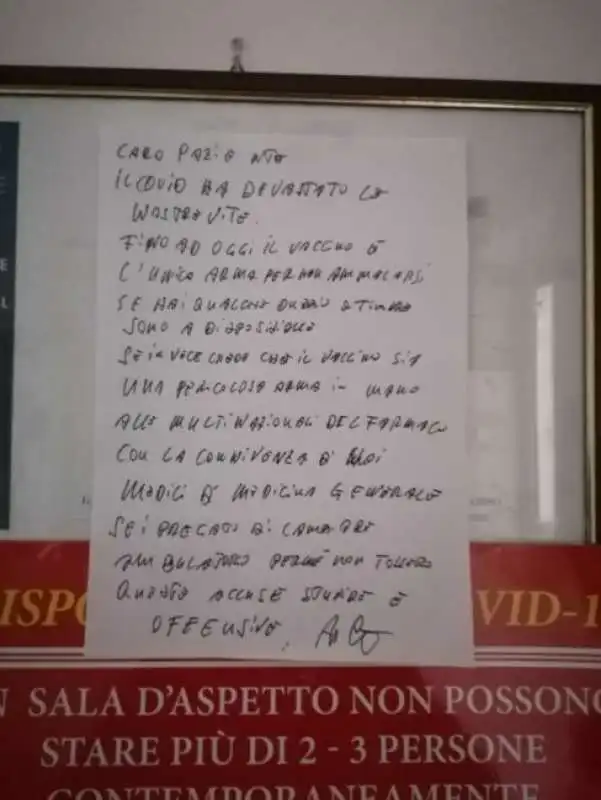 CARO PAZIENTE
IL COVID HA DEVASTATO LE
NOSTRE VITE.
FINO AD OGGI IL VACCINO È
L'UNICA ARMA PER NON AMMALARSI
SE HAI QUALCHE DUBBIO O TIMORE
SONO A DISPOSIZIONE
SE INVECE CREDI CHE IL VACCINO SIA
UNA PERICOLOSA ARMA IN MANO
ALLE MULTINAZIONALI DEL FARMACO
CON LA CONNIVENZA DI NOI
MEDICI DI MEDICINA GENERALE
SEI PREGATO DI CAMBIARE
AMBULATORIO PERCHÉ NON TOLLERO
QUESTE ACCUSE STUPIDE E
OFFENSIVE.
ISPO VID-1
N SALA D'ASPETTO NON POSSONO
STARE PIÙ DI 2 - 3 PERSONE
CONTEMPORANEAMENTE